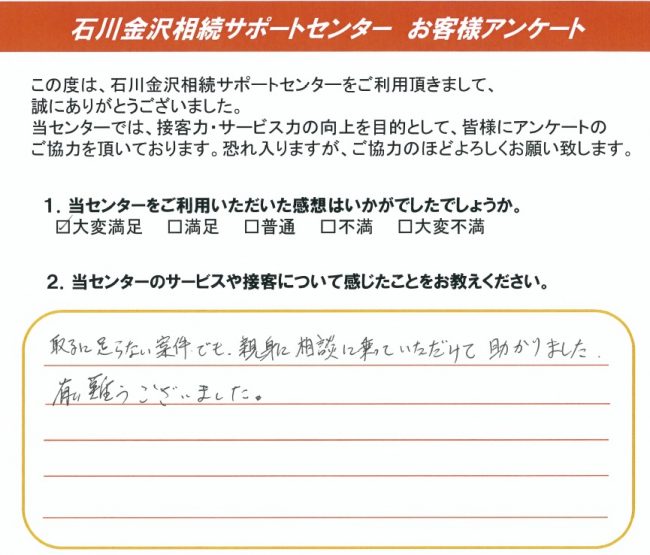 石川金沢相続サポートセンター お客様アンケート
この度は、石川金沢相続サポートセンターをご利用頂きまして、
誠にありがとうございました。
当センターでは、接客力・サービス力の向上を目的として、皆様にアンケートの
ご協力を頂いております。恐れ入りますが、ご協力のほどよろしくお願い致します。
1．当センターをご利用いただいた感想はいかがでしたでしょうか。
☑大変満足 □満足 □普通 □不満 □大変不満
2．当センターのサービスや接客について感じたことをお教えください。
取るに足らない案件でも、親身に相談に乗っていただけて助かりました．
有難うございました。